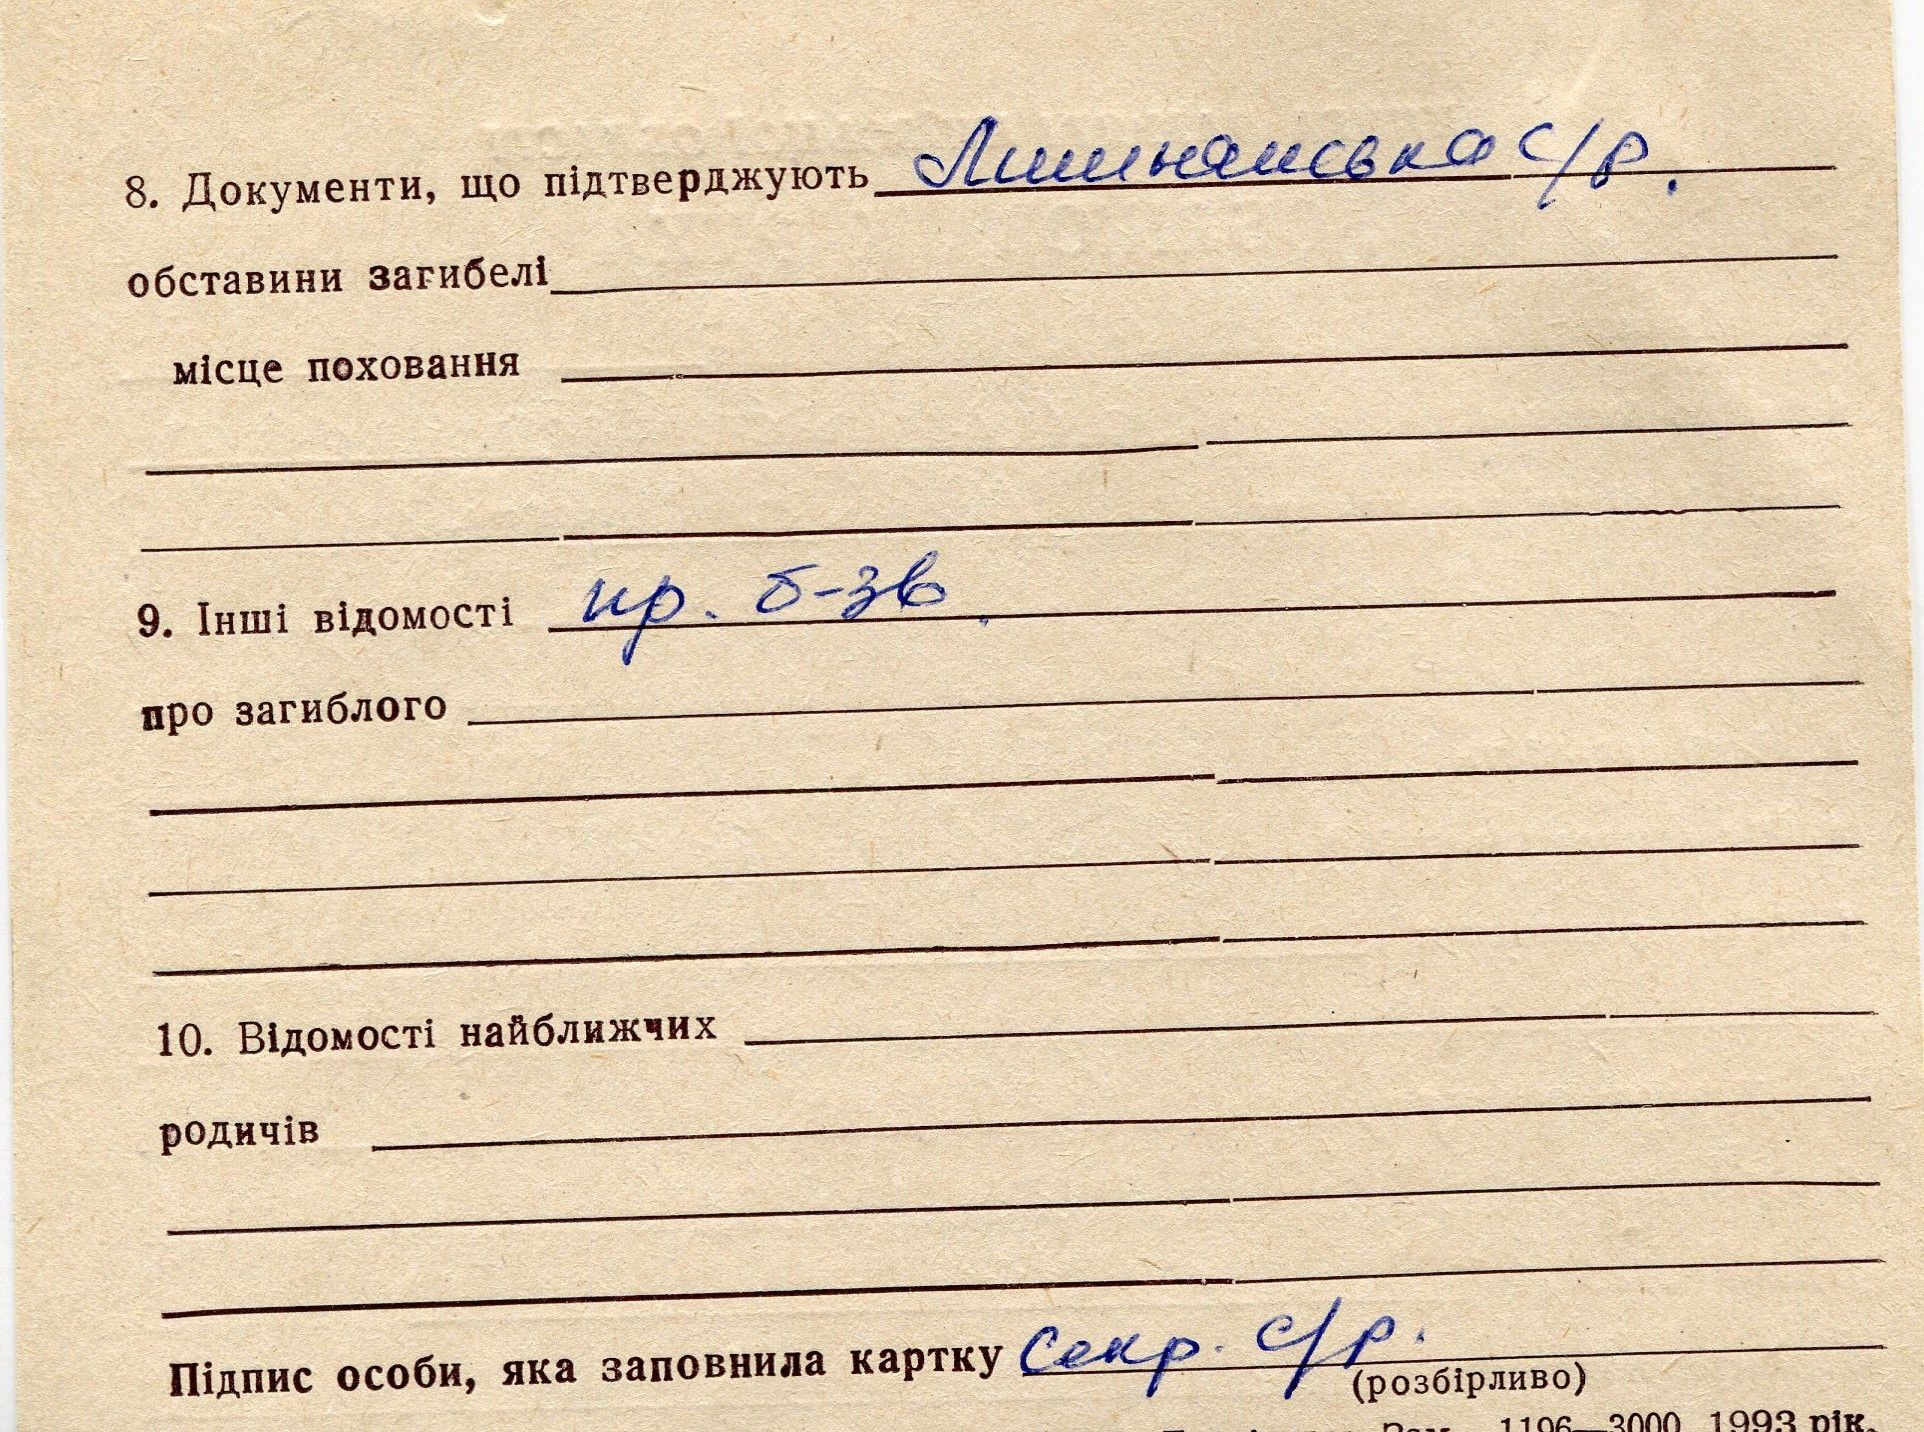 8. Документи, що підтверджують Лишнянська с/р.
обставини загибелі
місце поховання
9. Інші відомості пр. б-зв.
про загиблого
10. Відомості найближчих
родичів
Підпис особи, яка заповнила картку Секр. с/р.
(розбірливо)
1196—3000 1993 рік.